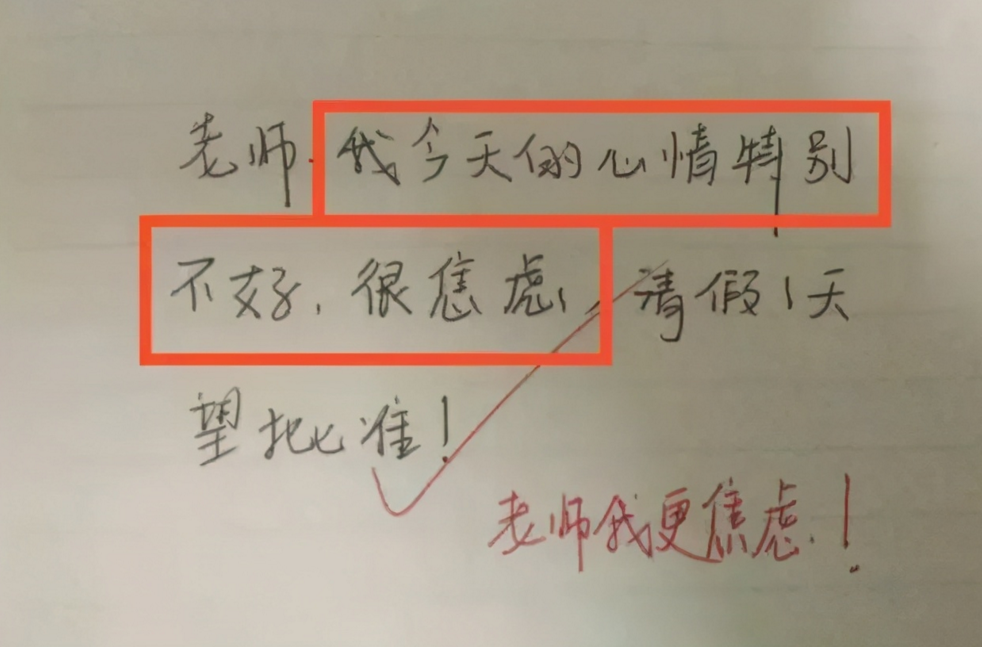 老师.我今天的心情特别
不好,很焦虑,请假1天
望批准!
老师我更焦虑.!